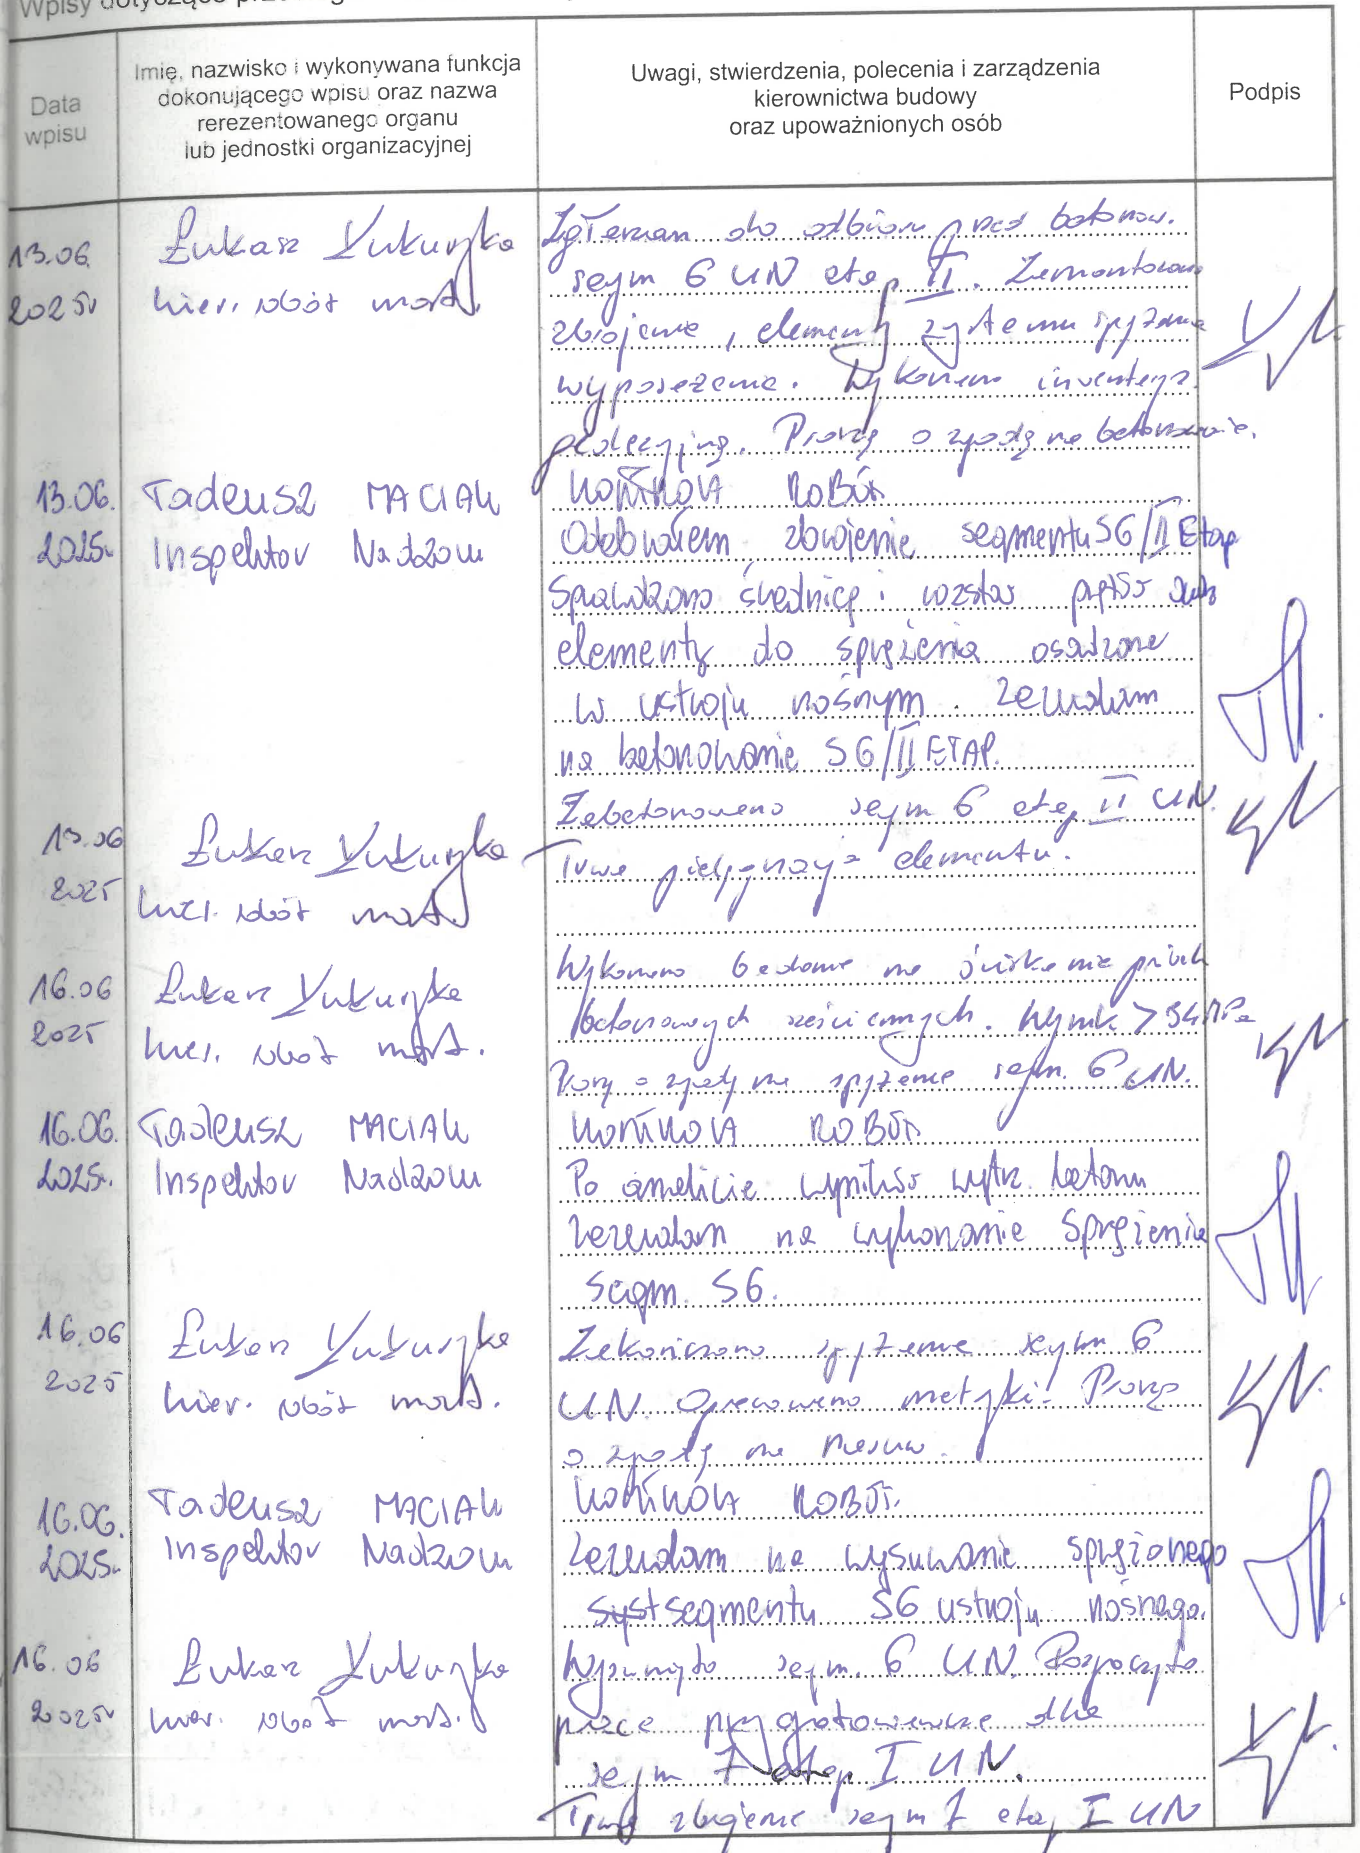 Wpisy dotyczące
Data
wpisu
Imię, nazwisko i wykonywana funkcja
dokonującego wpisu oraz nazwa
rerezentowanego organu
lub jednostki organizacyjnej
Uwagi, stwierdzenia, polecenia i zarządzenia
kierownictwa budowy
oraz upoważnionych osób
Podpis
13.06.
2025r
Łukasz Kukuryka
kier. robót most.
Zgłaszam do odbioru przed betonow.
segm 6 UN etap II. Zamontowano
zbrojenie, elementy systemu sprężania
wyposażenie. Wykonano inwentaryz.
geodezyjną. Proszę o zgodę na betonowanie.
13.06.
2025r.
Tadeusz MACIAK
Inspektor Nadzoru
KONTROLA ROBÓT.
Odebrałem zbrojenie segmentu S6/II Etap
Sprawdzono średnicę i rozstaw prętów oraz
elementy do sprężenia osadzone
w ustroju nośnym. Zezwalam
na betonowanie S6/II ETAP.
13.06
2025
Łukasz Kukuryka
kier. robót most.
Zabetonowano segm 6 etap II UN.
Trwa pielęgnacja elementu.
16.06
2025
Łukasz Kukuryka
kier. robót most.
Wykonano badanie na ściskanie próbek
betonowych sześciennych. Wynik > 34 MPa
Proszę o zgodę na sprężenie segm. 6 UN.
16.06.
2025r.
Tadeusz MACIAK
Inspektor Nadzoru
KONTROLA ROBÓT.
Po analizie wyników wytrz. betonu
zezwalam na wykonanie sprężenia
segm. S6.
16.06
2025
Łukasz Kukuryka
kier. robót most.
Zakończono sprężenie segm 6
UN. Opracowano metryki. Proszę
o zgodę na nasuw.
16.06.
2025r.
Tadeusz MACIAK
Inspektor Nadzoru
KONTROLA ROBÓT.
Zezwalam na wysuwanie sprężonego
syst segmentu S6 ustroju nośnego.
16.06
2025r
Łukasz Kukuryka
kier. robót most.
Wysunięto segm. 6 UN. Rozpoczęto
prace przygotowawcze dla
segm 7 etap I UN.
Trwa zbrojenie segm 7 etap I UN